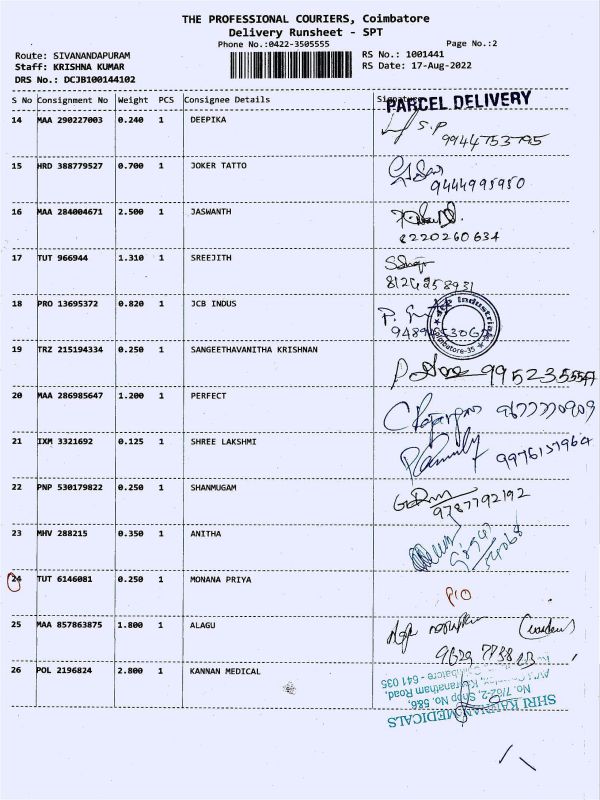 THE PROFESSIONAL COURIERS, Coimbatore
Delivery Runsheet - SPT
Phone No.:0422-3505555
Page No.:2
Route: SIVANANDAPURAM
RS No.: 1001441
Staff: KRISHNA KUMAR
RS Date: 17-Aug-2022
DRS No.: DCJB100144102
S No Consignment No Weight PCS Consignee Details
PARCEL DELIVERY
14 MAA 290227003 0.240 1 DEEPIKA
S.P
9944753795
15 HRD 388779527 0.700 1 JOKER TATTO
9444995950
16 MAA 284004671 2.500 1 JASWANTH
8220260634
17 TUT 966944 1.310 1 SREEJITH
8124258931
18 PRO 13695372 0.820 1 JCB INDUS
Coimbatore-35
19 TRZ 215194334 0.250 1 SANGEETHAVANITHA KRISHNAN
20 MAA 286985647 1.200 1 PERFECT
9677770909
21 IXM 3321692 0.125 1 SHREE LAKSHMI
9976157964
22 PNP 530179822 0.250 1 SHANMUGAM
9787792192
23 MHV 288215 0.350 1 ANITHA
24 TUT 6146081 0.250 1 MONANA PRIYA
P10
25 MAA 857863875 1.800 1 ALAGU
26 POL 2196824 2.800 1 KANNAN MEDICAL
SHRI KANNAN MEDICALS
No. 7/62-2, Shop No. 586,
Coimbatore - 641 035